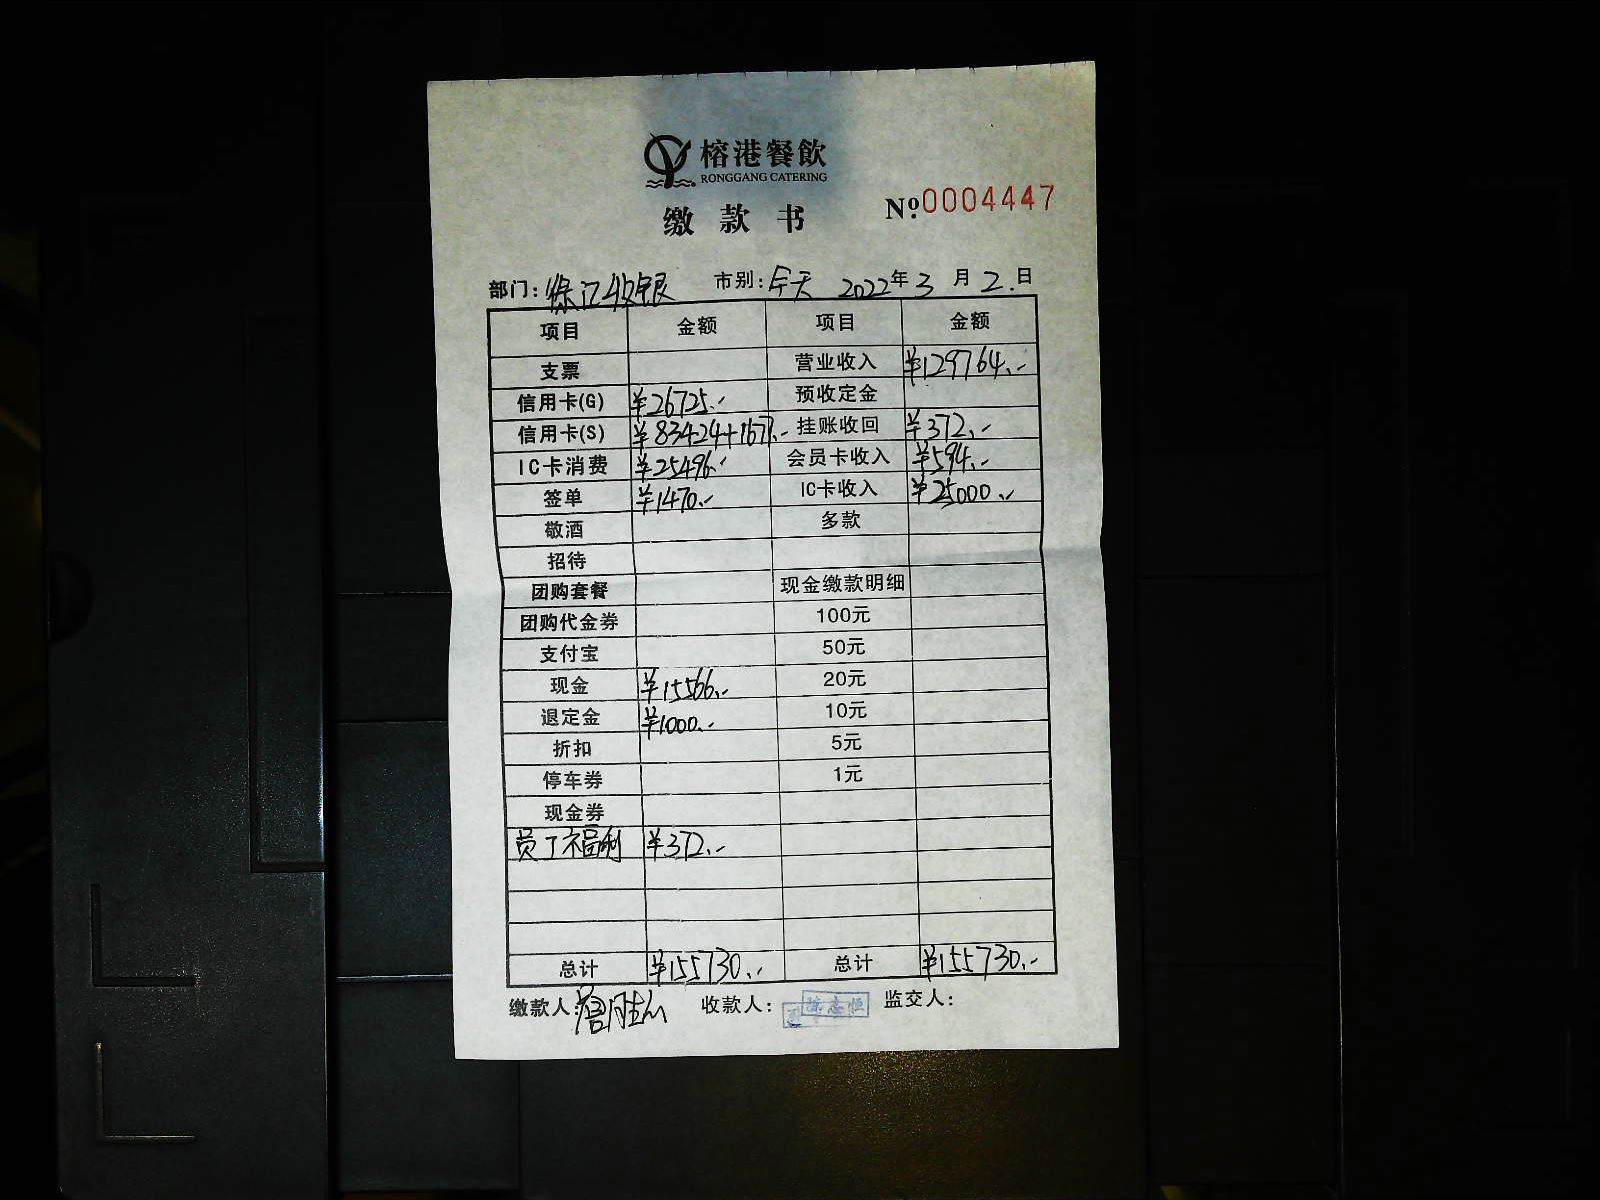 榕港餐飲
RONGGANG CATERING
缴款书
Nº:0004447
部门:徐汇收银 市别:全天 2022年3月2.日
项目 金额 项目 金额
支票 营业收入 ¥129764.-
信用卡(G) ¥26725.- 预收定金
信用卡(S) ¥83424+1677.- 挂账收回 ¥372.-
IC卡消费 ¥25496.- 会员卡收入 ¥594.-
签单 ¥1470.- IC卡收入 ¥25000.-
敬酒 多款
招待
团购套餐 现金缴款明细
团购代金券 100元
支付宝 50元
现金 ¥15566.- 20元
退定金 ¥1000.- 10元
折扣 5元
停车券 1元
现金券
员工福利 ¥372.-
总计 ¥155730.- 总计 ¥155730.-
缴款人: 收款人: 监交人: